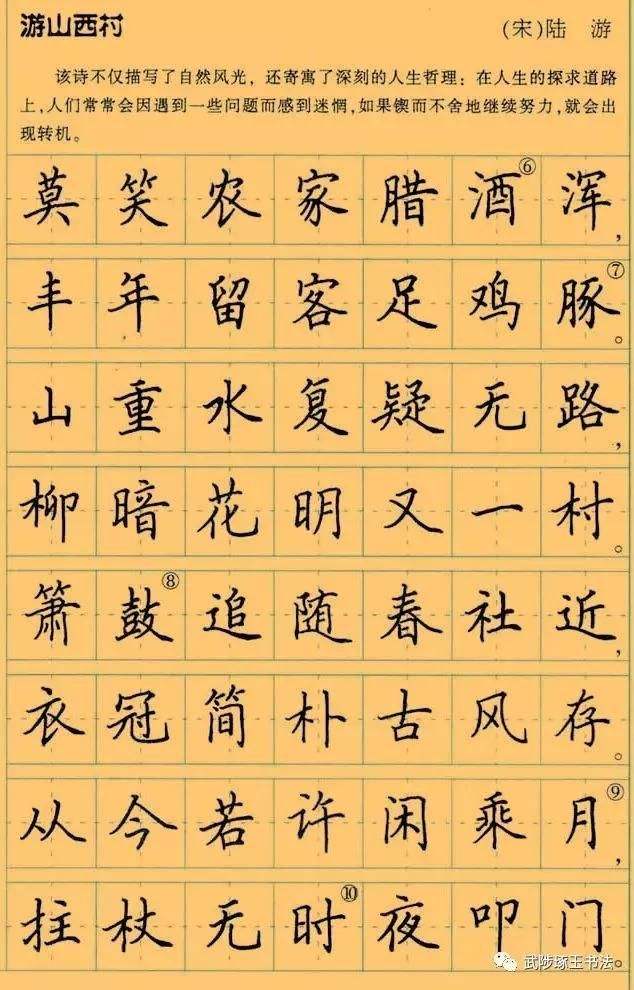 游山西村
(宋)陆 游
该诗不仅描写了自然风光，还寄寓了深刻的人生哲理：在人生的探求道路
上，人们常常会因遇到一些问题而感到迷惘，如果锲而不舍地继续努力，就会出
现转机。
莫笑农家腊酒⑥浑，
丰年留客足鸡豚⑦。
山重水复疑无路，
柳暗花明又一村。
箫鼓⑧追随春社近，
衣冠简朴古风存。
从今若许闲乘月⑨，
拄杖无时⑩夜叩门。
武陟琢王书法